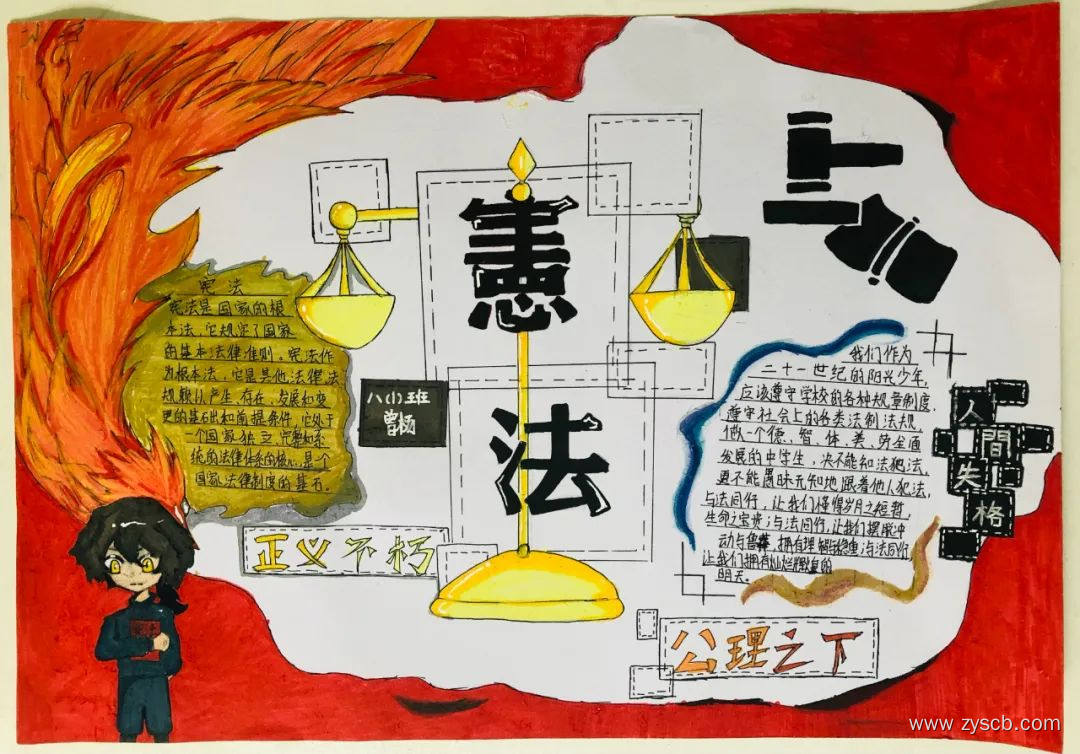 憲
法
宪法
宪法是国家的根
本法,它规定了国家
的基本法律准则。宪法作
为根本法,它是其他法律、法
规赖以产生、存在、发展和变
更的基础和前提条件,它处于
一个国家独立、完整和系
统的法律体系的核心,是一个
国家法律制度的基石。
八(1)班
曾杨
正义不朽
我们作为
二十一世纪的阳光少年,
应该遵守学校的各种规章制度,
遵守社会上的各类法制法规,
做一个德、智、体、美、劳全面
发展的中学生,决不能知法犯法,
更不能愚昧无知地跟着他人犯法,
与法同行,让我们懂得岁月之短暂,
生命之宝贵;与法同行,让我们摆脱冲
动与鲁莽,拥有理智与稳重;与法同行,
让我们拥有灿烂辉煌的
明天。
人
間
失
格
公理之下
www.zyscb.com